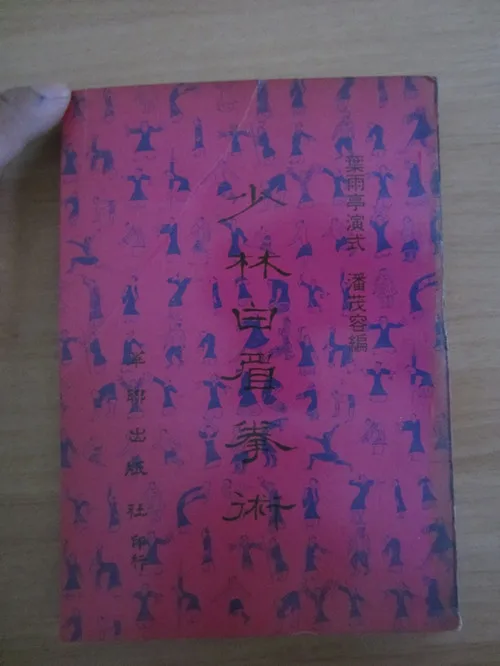 葉雨亭演式 潘茂容編
少林白眉拳術
華聯出版社印行